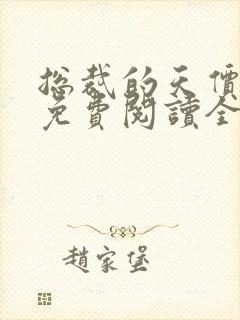 总裁的天價
免費閱讀全
趙家堡